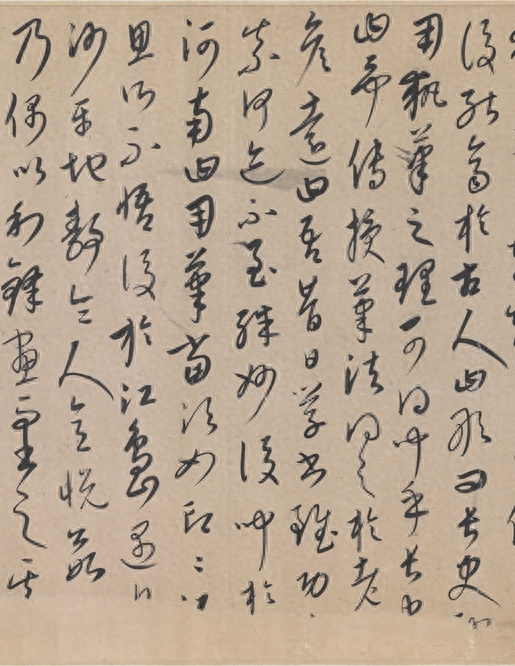 能齊於古人曰敢問長史
用執筆之理可得聞乎長史
曰予傳授筆法得之於老
彥遠曰吾昔日學書雖功
奈何迹不至殊妙後聞於
河南曰用筆當須如印印
思所不悟後於江島遇
沙平地靜令人意悅
乃偶以利鋒畫書之其